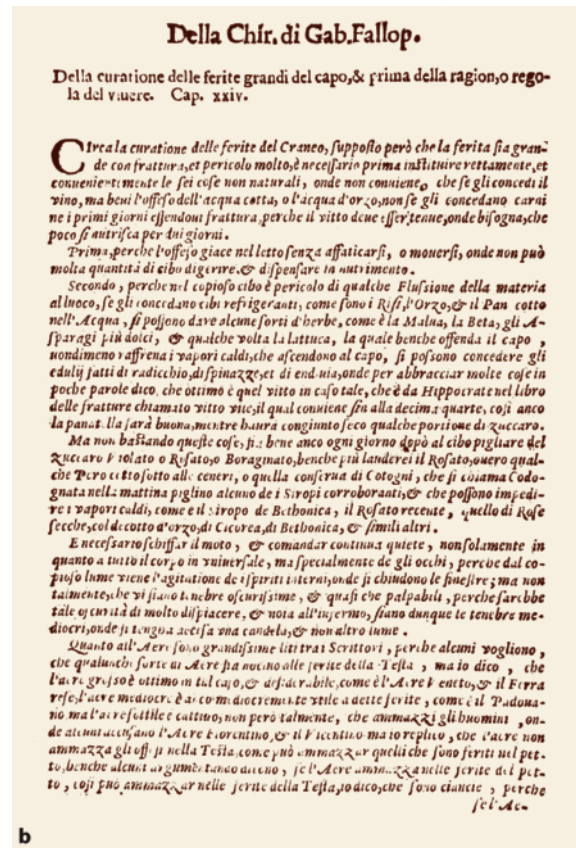 Della Chir. di Gab. Fallop.
Della curatione delle ferite grandi del capo, & prima della ragion, o rego-
la del viuere. Cap. xxiv.
CIrca la curatione delle ferite del Craneo, supposto però che la ferita sia gran-
de con frattura, et pericolo molto, è necessario prima instituire rettamente, et
conuenientemente le sei cose non naturali, onde non conuiene, che se gli concedi il
vino, ma beui l'offeso dell'acqua cotta, o l'acqua d'orzo, non se gli concedano carni
ne i primi giorni essendoui frattura, perche il vitto deue esser tenue, onde bisogna, che
poco si nutrisca per dui giorni.
Prima, perche l'offeso giace nel letto senza affaticarsi, o mouersi, onde non può
molta quantità di cibo digerire, & dispensare in nutrimento.
Secondo, perche nel copioso cibo è pericolo di qualche Flussione della materia
al luoco, se gli concedano cibi refrigeranti, come sono i Risi, l'Orzo, & il Pan cotto
nell'Acqua, si possono dare alcune sorti d'herbe, come è la Malua, la Beta, gli A-
sparagi più dolci, & qualche volta la lattuca, la quale benche offenda il capo,
nondimeno raffrena i vapori caldi, che ascendono al capo, si possono concedere gli
edulij fatti di radicchio, di spinazze, et di endiuia, onde per abbracciar molte cose in
poche parole dico, che ottimo è quel vitto in caso tale, che è da Hippocrate nel libro
delle fratture chiamato vitto vile, il qual conuiene sin alla decima quarta, cosi anco
la panatella sarà buona, mentre haurà congiunto seco qualche portione di zuccaro.
Ma non bastando queste cose, sia bene anco ogni giorno dopò al cibo pigliare del
zuccaro Violato o Rosato, o Boraginato, benche più lauderei il Rosato, ouero qual-
che Pero cotto sotto alle ceneri, o quella conserua di Cotogni, che si chiama Codo-
gnata nella mattina piglino alcuno de i Siropi corroboranti, & che possono impedi-
re i vapori caldi, come è il siropo de Bethonica, il Rosato recente, quello di Rose
secche, col decotto d'orzo, di Cicorea, di Bethonica, & simili altri.
E necessario schiffar il moto, & comandar continua quiete, non solamente in
quanto a tutto il corpo in vniuersale, ma specialmente de gli occhi, perche dal co-
pioso lume viene l'agitatione de i spiriti interni, onde si chiudono le finestre; ma non
talmente, che vi siano tenebre oscurissime, & quasi che palpabili, perche sarebbe
tale oscurità di molto dispiacere, & noia all'infermo, siano dunque le tenebre me-
diocri, onde si tengua accesa vna candela, & non altro lume.
Quanto all'Aere sono grandissime liti tra i Scrittori, perche alcuni vogliono,
che qualunche sorte di Aere sia nociuo alle ferite della Testa, ma io dico, che
l'aere grosso è ottimo in tal caso, & desiderabile, come è l'Aere Veneto, & il Ferra
rese, l'aere mediocre è anco mediocremente vtile a dette ferite, come è il Padoua-
no, ma l'aere sottile è cattiuo, non però talmente, che ammazzi gli huomini, on-
de alcuni accusano l'Aere Fiorentino, & il Vicentino ma io replico, che l'aere non
ammazza gli offesi nella Testa, come può ammazzar quelli che sono feriti nel pet-
to, benche alcuni argumentando dicono, se l'Aere ammazza nelle ferite del pet-
to, cosi può ammazzar nelle ferite della Testa, io dico, che sono ciancie, perche
se l'Ae-
b